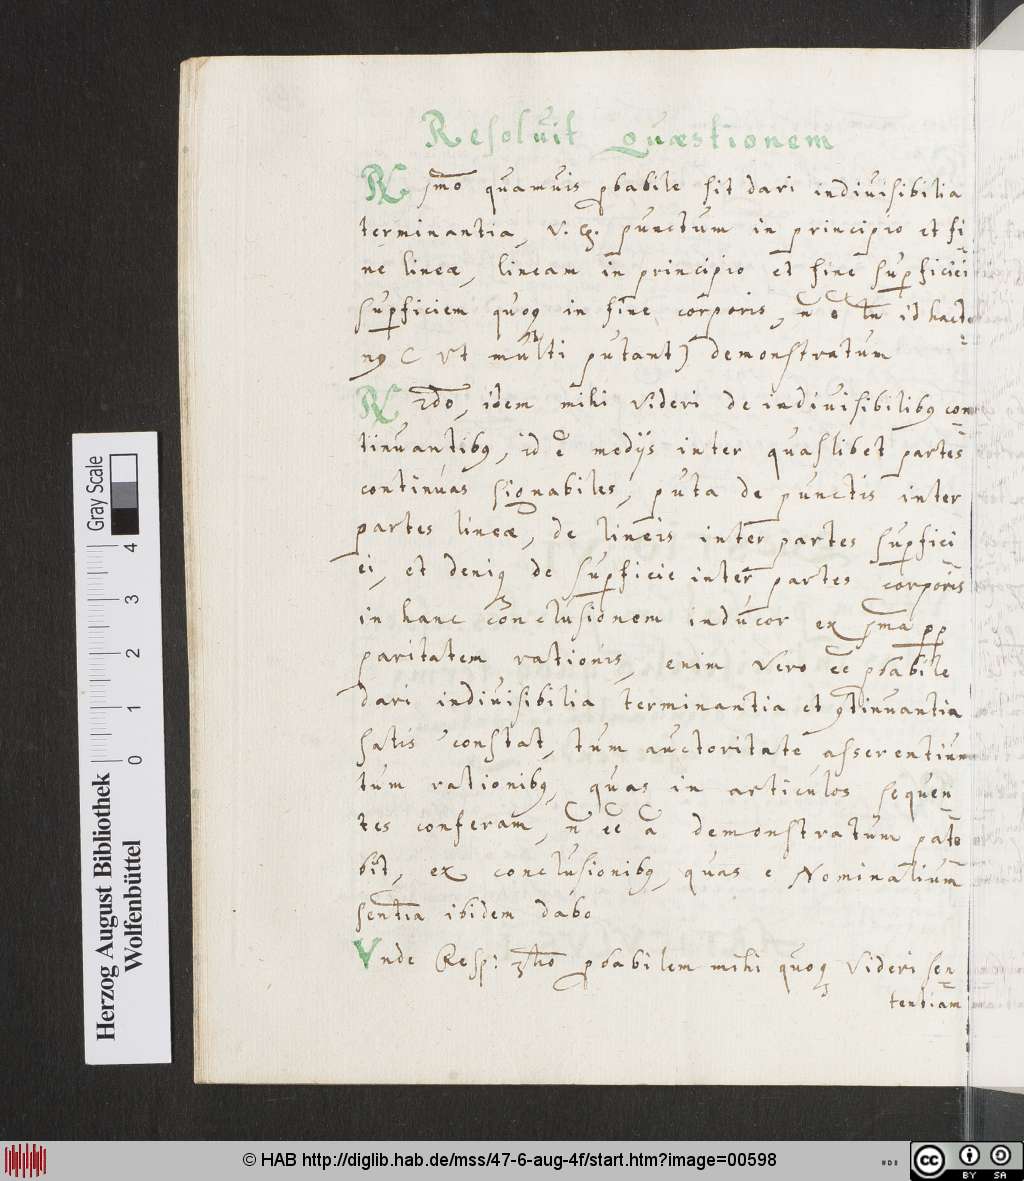 Resoluit Quæstionem
R 1mo quamuis pbabile sit dari indiuisibilia
terminantia, v.g. punctum in principio et fi-
ne lineæ, lineam in principio et fine supficiei
supficiem quoq in fine corporis, ñ e tñ id hacte-
nq ( vt multi putant) demonstratum
R 2do, idem mihi videri de indiuisibilibq con-
tinuantibq, id ẽ medijs inter quaslibet partes
continuas signabiles, puta de punctis inter
partes lineæ, de lineis inter partes supfici-
ei, et deniq de supficie inter partes corporis
in hanc conclusionem inducor ex 1ma pp
paritatem rationis, enim vero eẽ pbabile
dari indiuisibilia terminantia et 9tinuantia
satis constat, tum auctoritate asserentium
tum rationibq, quas in articulos sequen-
tes conferam, ñ eẽ a demonstratum pate-
bit, ex conclusionibq, quas e Nominalium
sentia ibidem dabo
Vnde Resp: 3tio pbabilem mihi quoq videri sen-
tentiam
Herzog August Bibliothek
Wolfenbüttel
0 1 2 3 4
Gray Scale
© HAB http://diglib.hab.de/mss/47-6-aug-4f/start.htm?image=00598
cc BY SA